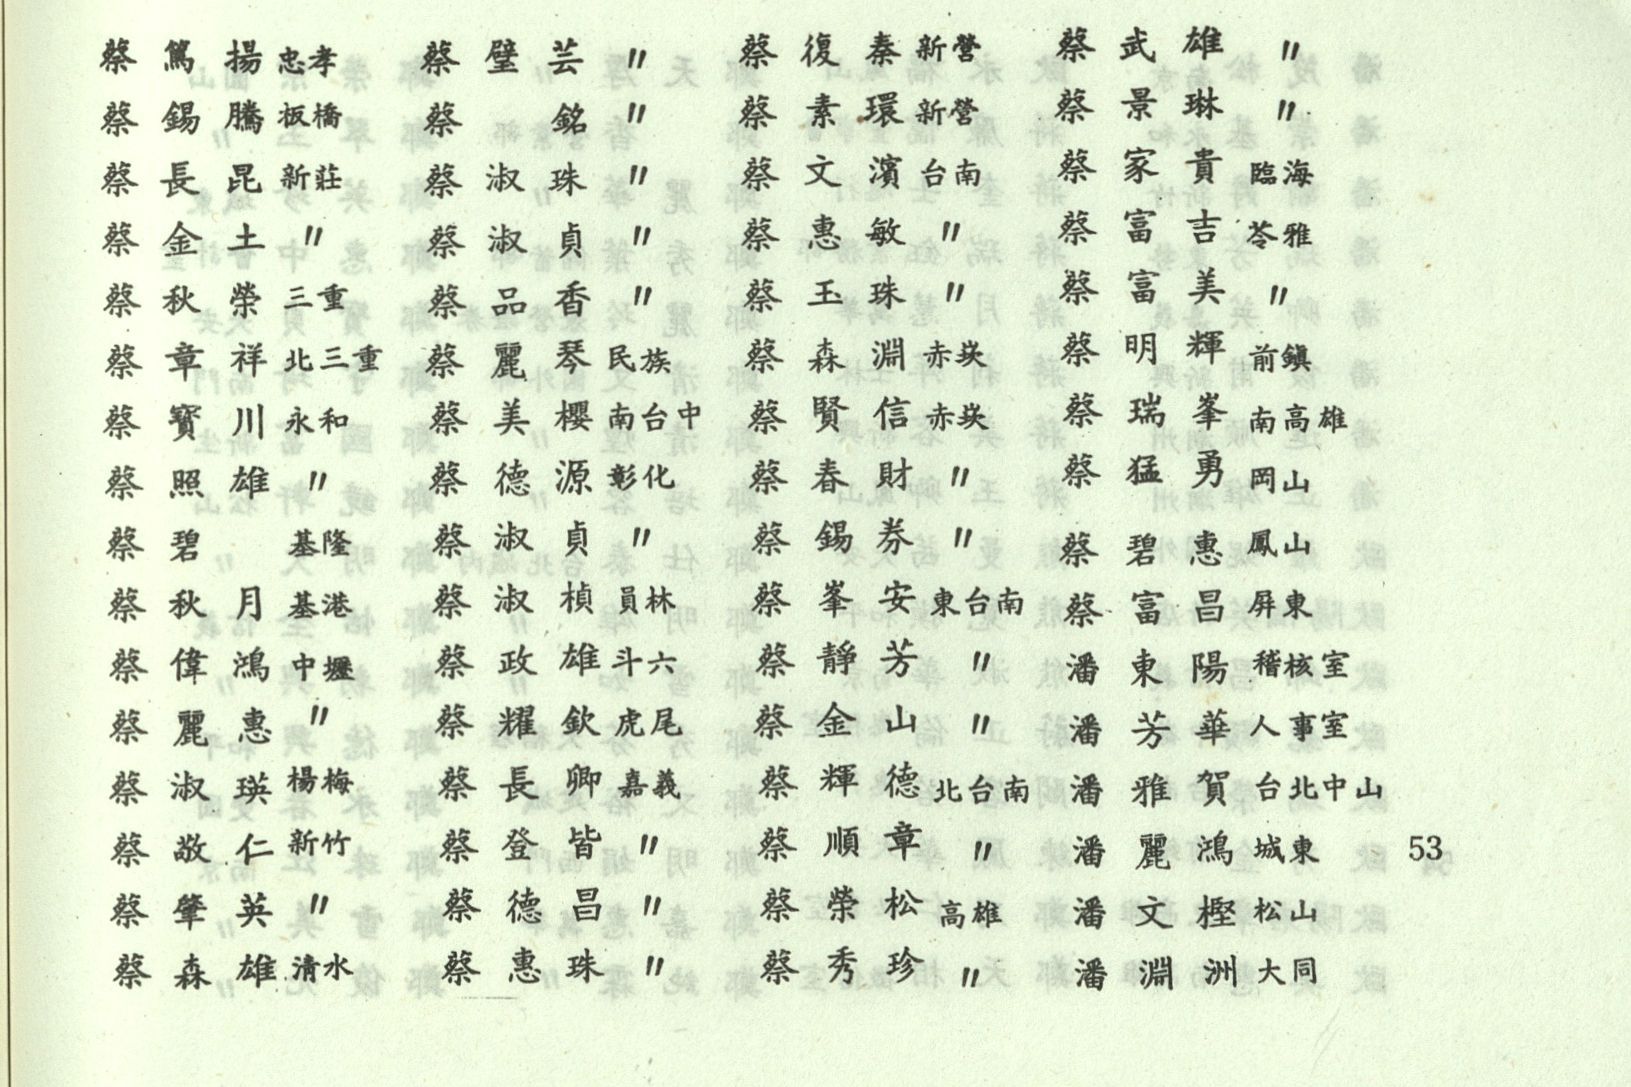 蔡篤揚 忠孝
蔡錫騰 板橋
蔡長昆 新莊
蔡金土 〃
蔡秋榮 三重
蔡章祥 北三重
蔡寶川 永和
蔡照雄 〃
蔡碧 基隆
蔡秋月 基港
蔡偉鴻 中壢
蔡麗惠 〃
蔡淑瑛 楊梅
蔡敬仁 新竹
蔡肇英 〃
蔡森雄 清水
蔡璧芸 〃
蔡銘 〃
蔡淑珠 〃
蔡淑貞 〃
蔡品香 〃
蔡麗琴 民族
蔡美櫻 南台中
蔡德源 彰化
蔡淑貞 〃
蔡淑楨 員林
蔡政雄 斗六
蔡耀欽 虎尾
蔡長卿 嘉義
蔡登皆 〃
蔡德昌 〃
蔡惠珠 〃
蔡復秦 新營
蔡素環 新營
蔡文濱 台南
蔡惠敏 〃
蔡玉珠 〃
蔡森淵 赤崁
蔡賢信 赤崁
蔡春財 〃
蔡錫券 〃
蔡峯安 東台南
蔡靜芳 〃
蔡金山 〃
蔡輝德 北台南
蔡順章 〃
蔡榮松 高雄
蔡秀珍 〃
蔡武雄 〃
蔡景琳 〃
蔡家貴 臨海
蔡富吉 苓雅
蔡富美 〃
蔡明輝 前鎮
蔡瑞峯 南高雄
蔡猛勇 岡山
蔡碧惠 鳳山
蔡富昌 屏東
潘東陽 稽核室
潘芳華 人事室
潘雅賀 台北中山
潘麗鴻 城東
潘文樫 松山
潘淵洲 大同
53